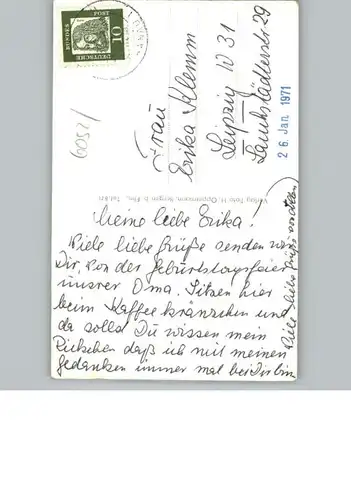 10
BUNDES POST
6052/
Frau
Erika Klemm
Leipzig W 31
Landstädterstr 29
26. Jan. 1971
Verlag Foto H. Oppermann, Bergen b.
Meine liebe Erika!
Viele liebe Grüße senden wir
Dir, von der Geburtstagsfeier
unsrer Oma. Sitzen hier
beim Kaffee kränzchen und
da sollst Du wissen mein
daß ich mit meinen
Gedanken immer mal bei Dir bin
Viele liebe Grüße